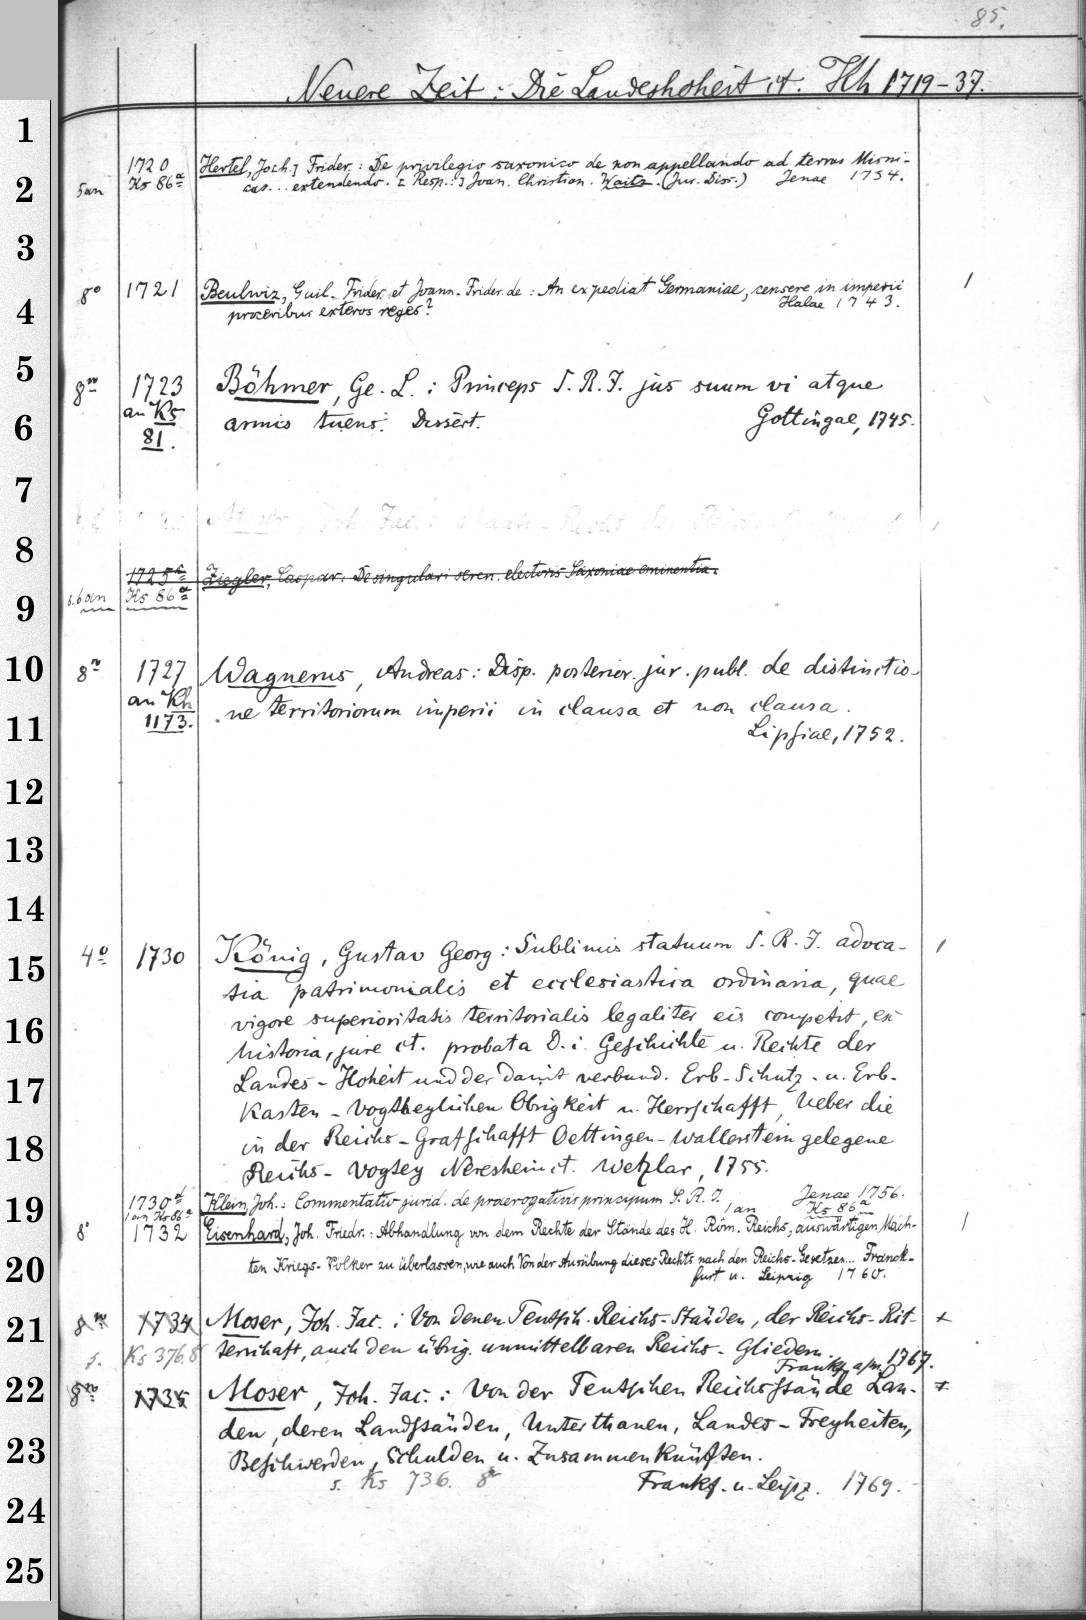 85.
Neuere Zeit : Die Landeshoheit et. Kh 1719-37.
1720 Hertel, Joch.] Frider. : De privilegio saxonico de non appellando ad terras Misni-
5 an Ks 86a cas... extendendo. [Resp.:] Joan. Christian. Waitz. (Jur. Diss.) Jenae 1754.
8o 1721 Beulwiz, Guil. Frider. et Joann. Frider. de : An expediat Germaniae, censere in imperii
proceribus exteros reges? Halae 1743.
8o 1723 Böhmer, Ge. L. : Princeps S. R. I. jus suum vi atque
an Ks armis tuens. Dissert. Gottingae, 1745.
81.
Joh. Jac.
1725a Ziegler, Caspar: De singulari seren. electoris Saxoniae eminentia.
s. 6 an Ks 86a
8o 1727 Wagnerus, Andreas : Disp. posterior. jur. publ. de distinctio-
an Kh ne territoriorum imperii in clausa et non clausa.
1173. Lipsiae, 1752.
4o 1730 König, Gustav Georg : Sublimis statuum S. R. I. advoca-
tia patrimonialis et ecclesiastica ordinaria, quae
vigore superioritatis territorialis legaliter eis competit, ex
historia, jure et. probata D. i. Geschichte u. Rechte der
Landes-Hoheit und der damit verbund. Erb-Schutz- u. Erb-
Kasten-Vogtheylichen Obrigkeit u. Herrschafft, Ueber die
in der Reichs-Grafschafft Oettingen-Wallerstein gelegene
Reichs-Vogtey Neresheim et. Wetzlar, 1755.
1730a Klein, Joh.: Commentatio jurid. de praerogativis principum S. R. I. Jenae 1756.
1 an Ks 86a 1 an Ks 86a
8o 1732 Eisenhard, Joh. Friedr. : Abhandlung von dem Rechte der Stände des H. Röm. Reichs, auswärtigen Mäch-
ten Kriegs-Völker zu überlassen, wie auch Von der Ausübung dieses Rechts nach den Reichs-Gesetzen... Franck-
furt u. Leipzig 1760.
8o 1734 Moser, Joh. Jac. : Von denen Teutsch. Reichs-Ständen, der Reichs-Rit- +
s. Ks 376. 8 terschaft, auch den übrig. unmittelbaren Reichs-Gliedern.
Frankf. a/m. 1767.
8o 1735 Moser, Joh. Jac. : Von der Teutschen Reichsstände Lan- +
den, deren Landständen, Unterthanen, Landes-Freyheiten,
Beschwerden, Schulden u. Zusammenkünften.
s. Ks 736. 8o Frankf. u. Leipz. 1769.
1
2
3
4
5
6
7
8
9
10
11
12
13
14
15
16
17
18
19
20
21
22
23
24
25